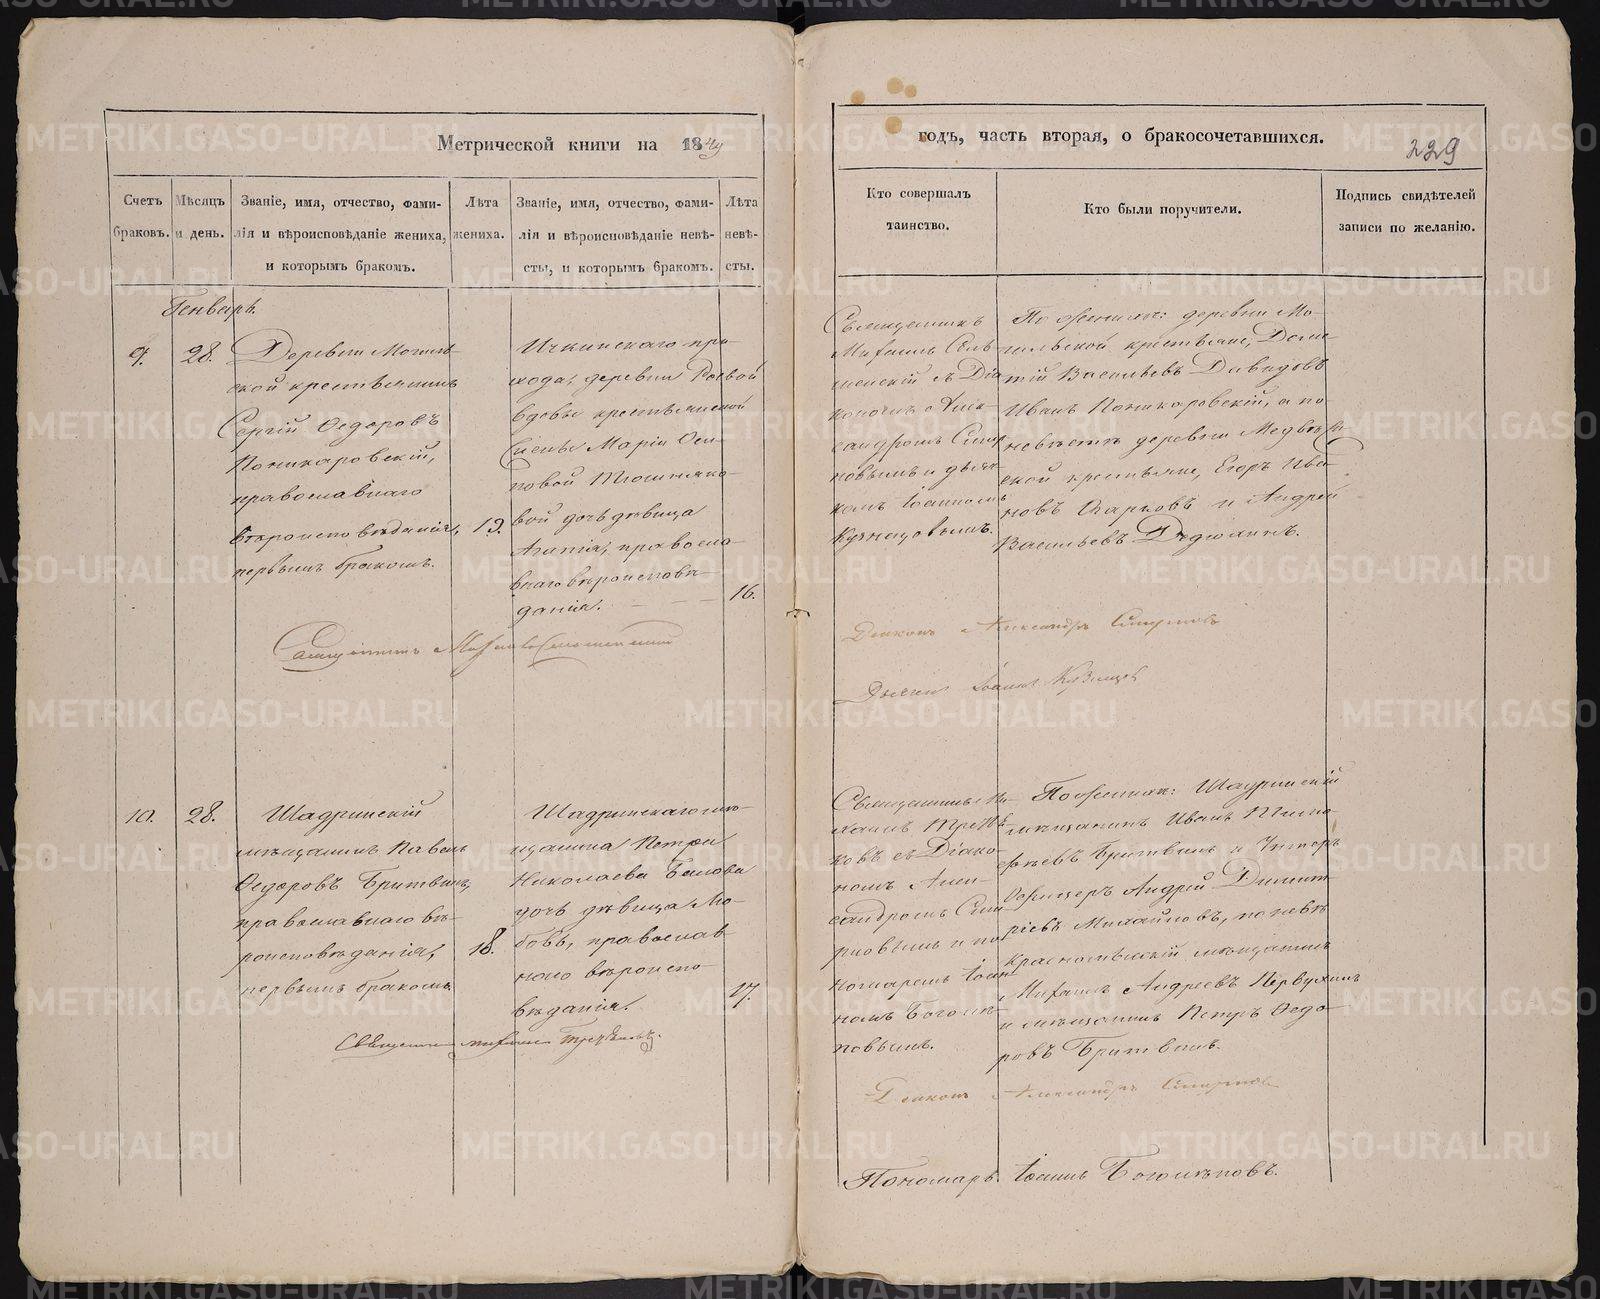 Метрической книги на 18
годъ, часть вторая, о бракосочетавшихся.
229
Счетъ браковъ.
Мѣсяцъ и день.
Званіе, имя, отчество, фами-
лія и вѣроисповѣданіе жениха,
и которымъ бракомъ.
Лѣта
жениха.
Званіе, имя, отчество, фами-
лія и вѣроисповѣданіе невѣ-
сты, и которымъ бракомъ.
Лѣта
невѣ-
сты.
Кто совершалъ
таинство.
Кто были поручители.
Подпись свидѣтелей
записи по желанію.
Генварь.
9.
28.
Деревни Могиль
ской крестьянинъ
Сергій Ѳедоровъ
Поникаровскій,
православнаго
вѣроисповѣданія,
первымъ бракомъ.
19.
Ичкинскаго при-
хода, деревни
вдовы крестьянской
Маріи Оси-
повой
вой дочь дѣвица
Агапія, правосла-
внаго вѣроисповѣ-
данія.
16.
Священникъ
Михаилъ
съ Діа
кономъ Алек-
сандромъ Смир
новымъ и дьяч-
комъ Іоанномъ
Кузнецовымъ.
По женихѣ: деревни Мо-
гильской крестьяне,
Васильевъ Давыдовъ
Иванъ Поникаровскій, а по
невѣстѣ деревни
ской крестьяне, Егоръ Ива-
новъ и Андрей
Васильевъ
Священникъ Михаилъ
Діаконъ Александръ Смирновъ
Дьячекъ Іоаннъ Кузнецовъ
10.
28.
Шадринскій
мѣщанинъ Павелъ
Ѳедоровъ Бритвинъ,
православнаго вѣ-
роисповѣданія,
первымъ бракомъ.
18.
Шадринскаго мѣ-
щанина Петра
Николаева
дочь дѣвица Лю-
бовь, православ
наго вѣроиспо-
вѣданія.
17.
Священникъ Ми-
хаилъ
ковъ съ Діако-
номъ Алек-
сандромъ Сми
рновымъ и по
номаремъ Іоан
номъ Боголѣ-
повымъ.
По женихѣ: Шадринскій
мѣщанинъ Иванъ Тимо-
ѳеевъ Бритвинъ и Унтеръ
Офицеръ Андрей Димит
ріевъ Михайловъ, по невѣ
Красноуфимскій мѣщанинъ
Михаилъ Андреевъ Первухинъ
и мѣщанинъ Петръ Ѳедо-
ровъ Бритвинъ.
Священникъ Михаилъ
Діаконъ Александръ Смирновъ
Пономарь Іоаннъ Боголѣповъ.
METRIKI.GASO-URAL.RU